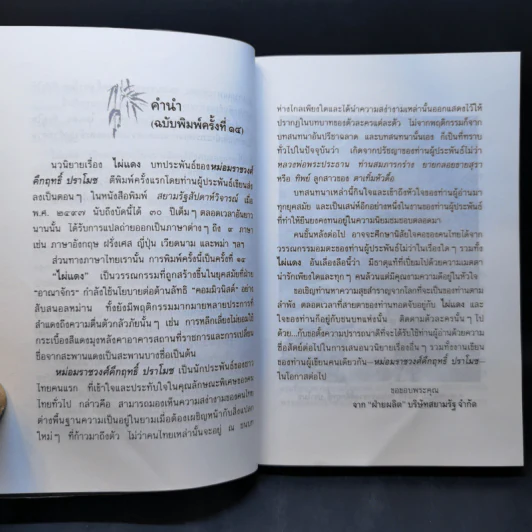 คำนำ
(ฉบับพิมพ์ครั้งที่ ๑๔)
นวนิยายเรื่อง ไผ่แดง บทประพันธ์ของหม่อมราชวงศ์
คึกฤทธิ์ ปราโมช ตีพิมพ์ครั้งแรกโดยท่านผู้ประพันธ์เขียนส่ง
ลงเป็นตอนๆ ในหนังสือพิมพ์ สยามรัฐสัปดาห์วิจารณ์ เมื่อ
พ.ศ. ๒๔๙๗ นับถึงบัดนี้ได้ ๓๐ ปีเต็มๆ ตลอดเวลาอันยาว
นานนั้น ได้รับการแปลถ่ายออกเป็นภาษาต่างๆ ถึง ๙ ภาษา
เช่น ภาษาอังกฤษ ฝรั่งเศส ญี่ปุ่น เวียดนาม และพม่า ฯลฯ
ส่วนทางภาษาไทยเรานั้น การพิมพ์ครั้งนี้เป็นครั้งที่ ๑๔
"ไผ่แดง" เป็นวรรณกรรมที่ถูกสร้างขึ้นในยุคสมัยที่ฝ่าย
"อาณาจักร" กำลังใช้นโยบายต่อต้านลัทธิ "คอมมิวนิสต์" อย่าง
สับสนอลหม่าน ทั้งยังมีพฤติกรรมมากมายหลายประการที่
สำแดงถึงความตื่นตัวกลัวภัยนั้นๆ เช่น การหลีกเลี่ยงไม่ยอมใช้
กระเบื้องสีแดงมุงหลังคาอาคารสถานที่ราชการและการเปลี่ยน
ชื่อจากสะพานแดงเป็นสะพานบางซื่อเป็นต้น
หม่อมราชวงศ์คึกฤทธิ์ ปราโมช เป็นนักประพันธ์ของชาว
ไทยคนแรก ที่เข้าใจและประทับใจในคุณลักษณะพิเศษของคน
ไทยทั่วไป กล่าวคือ สามารถมองเห็นความสง่างามของคนไทย
ต่างพื้นฐานความเป็นอยู่ในยามเมื่อต้องเผชิญหน้ากับสิ่งแปลก
ใหม่ๆ ที่ก้าวมาถึงตัว ไม่ว่าคนไทยเหล่านั้นจะอยู่ ณ ชนบท
ห่างไกลเพียงใดและได้นำความสง่างามเหล่านั้นออกแสดงไว้ให้
ปรากฏในบทบาทของตัวละครแต่ละตัว ไม่ว่าจากพฤติกรรมก็จาก
บทสนทนาอันปรีชาฉลาด และบทสนทนานั้นเอง ก็เป็นที่ทราบ
ทั่วไปในปัจจุบันว่า เกิดจากปรัชญาของท่านผู้ประพันธ์ไม่ว่า
หลวงพ่อพระประธาน ท่านสมภารกร่าง ยายกลอยขายสุรา
หรือ ทิพย์ ลูกสาวของ ตาเทิ่มหัวดื้อ
บทสนทนาเหล่านี้กินใจและเข้าถึงหัวใจของท่านผู้อ่านมา
ทุกยุคสมัย และเป็นเสน่ห์อีกอย่างหนึ่งในงานของท่านผู้ประพันธ์
ที่ทำให้ยืนยงคงทนอยู่ในความนิยมชมชอบตลอดมา
คนชั้นหลังต่อไป อาจจะศึกษานิสัยใจคอของคนไทยได้จาก
วรรณกรรมอมตะของท่านผู้ประพันธ์ไม่ว่าในเรื่องใดๆ รวมทั้ง
ไผ่แดง อันเลื่องลือนี้ว่า มีธาตุแท้ที่เปี่ยมไปด้วยความเมตตา
น่ารักเพียงใดและทุกๆ คนล้วนแต่มีคุณงามความดีอยู่ในหัวใจ
ขอเชิญท่านหาความสุขสำราญจากโลกที่จะเป็นของท่านตาม
ลำพัง ตลอดเวลาที่สายตาของท่านทอดจับอยู่กับ ไผ่แดง และ
ใจของท่านก็อยู่กับชนบทแห่งนั้น ติดตามตัวละครนั้นๆ ไป
ด้วย...กับขอตั้งความปรารถนาดีที่จะได้รับใช้ท่านผู้อ่านด้วยความ
ซื่อสัตย์ต่อไปในการเสนอนวนิยายเรื่องอื่นๆ รวมทั้งงานเขียน
ของท่านผู้เขียนคนเดียวกัน—หม่อมราชวงศ์คึกฤทธิ์ ปราโมช—
ในโอกาสต่อไป
ขอขอบพระคุณ
จาก "ฝ่ายผลิต" บริษัทสยามรัฐ จำกัด